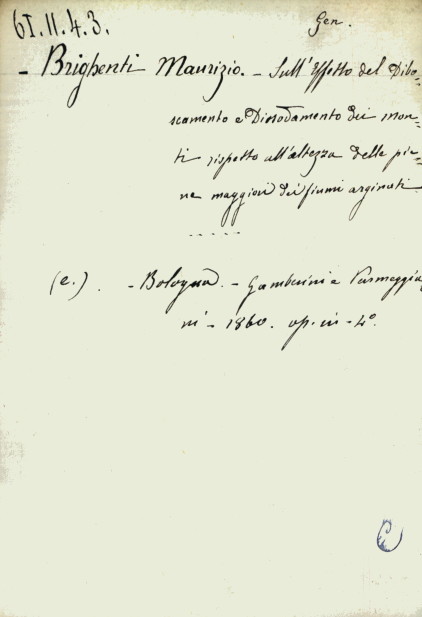 61.11.4.3.
Gen.
- Brighenti Maurizio. - Sull'Effetto del Dibo=
scamento e Dissodamento dei mon=
ti rispetto all'altezza delle pie=
ne maggiori dei fiumi arginati.
- - - - -
(e.) . - Bologna. - Gamberini e Parmeggia
ni - 1860. op. in - 4°.